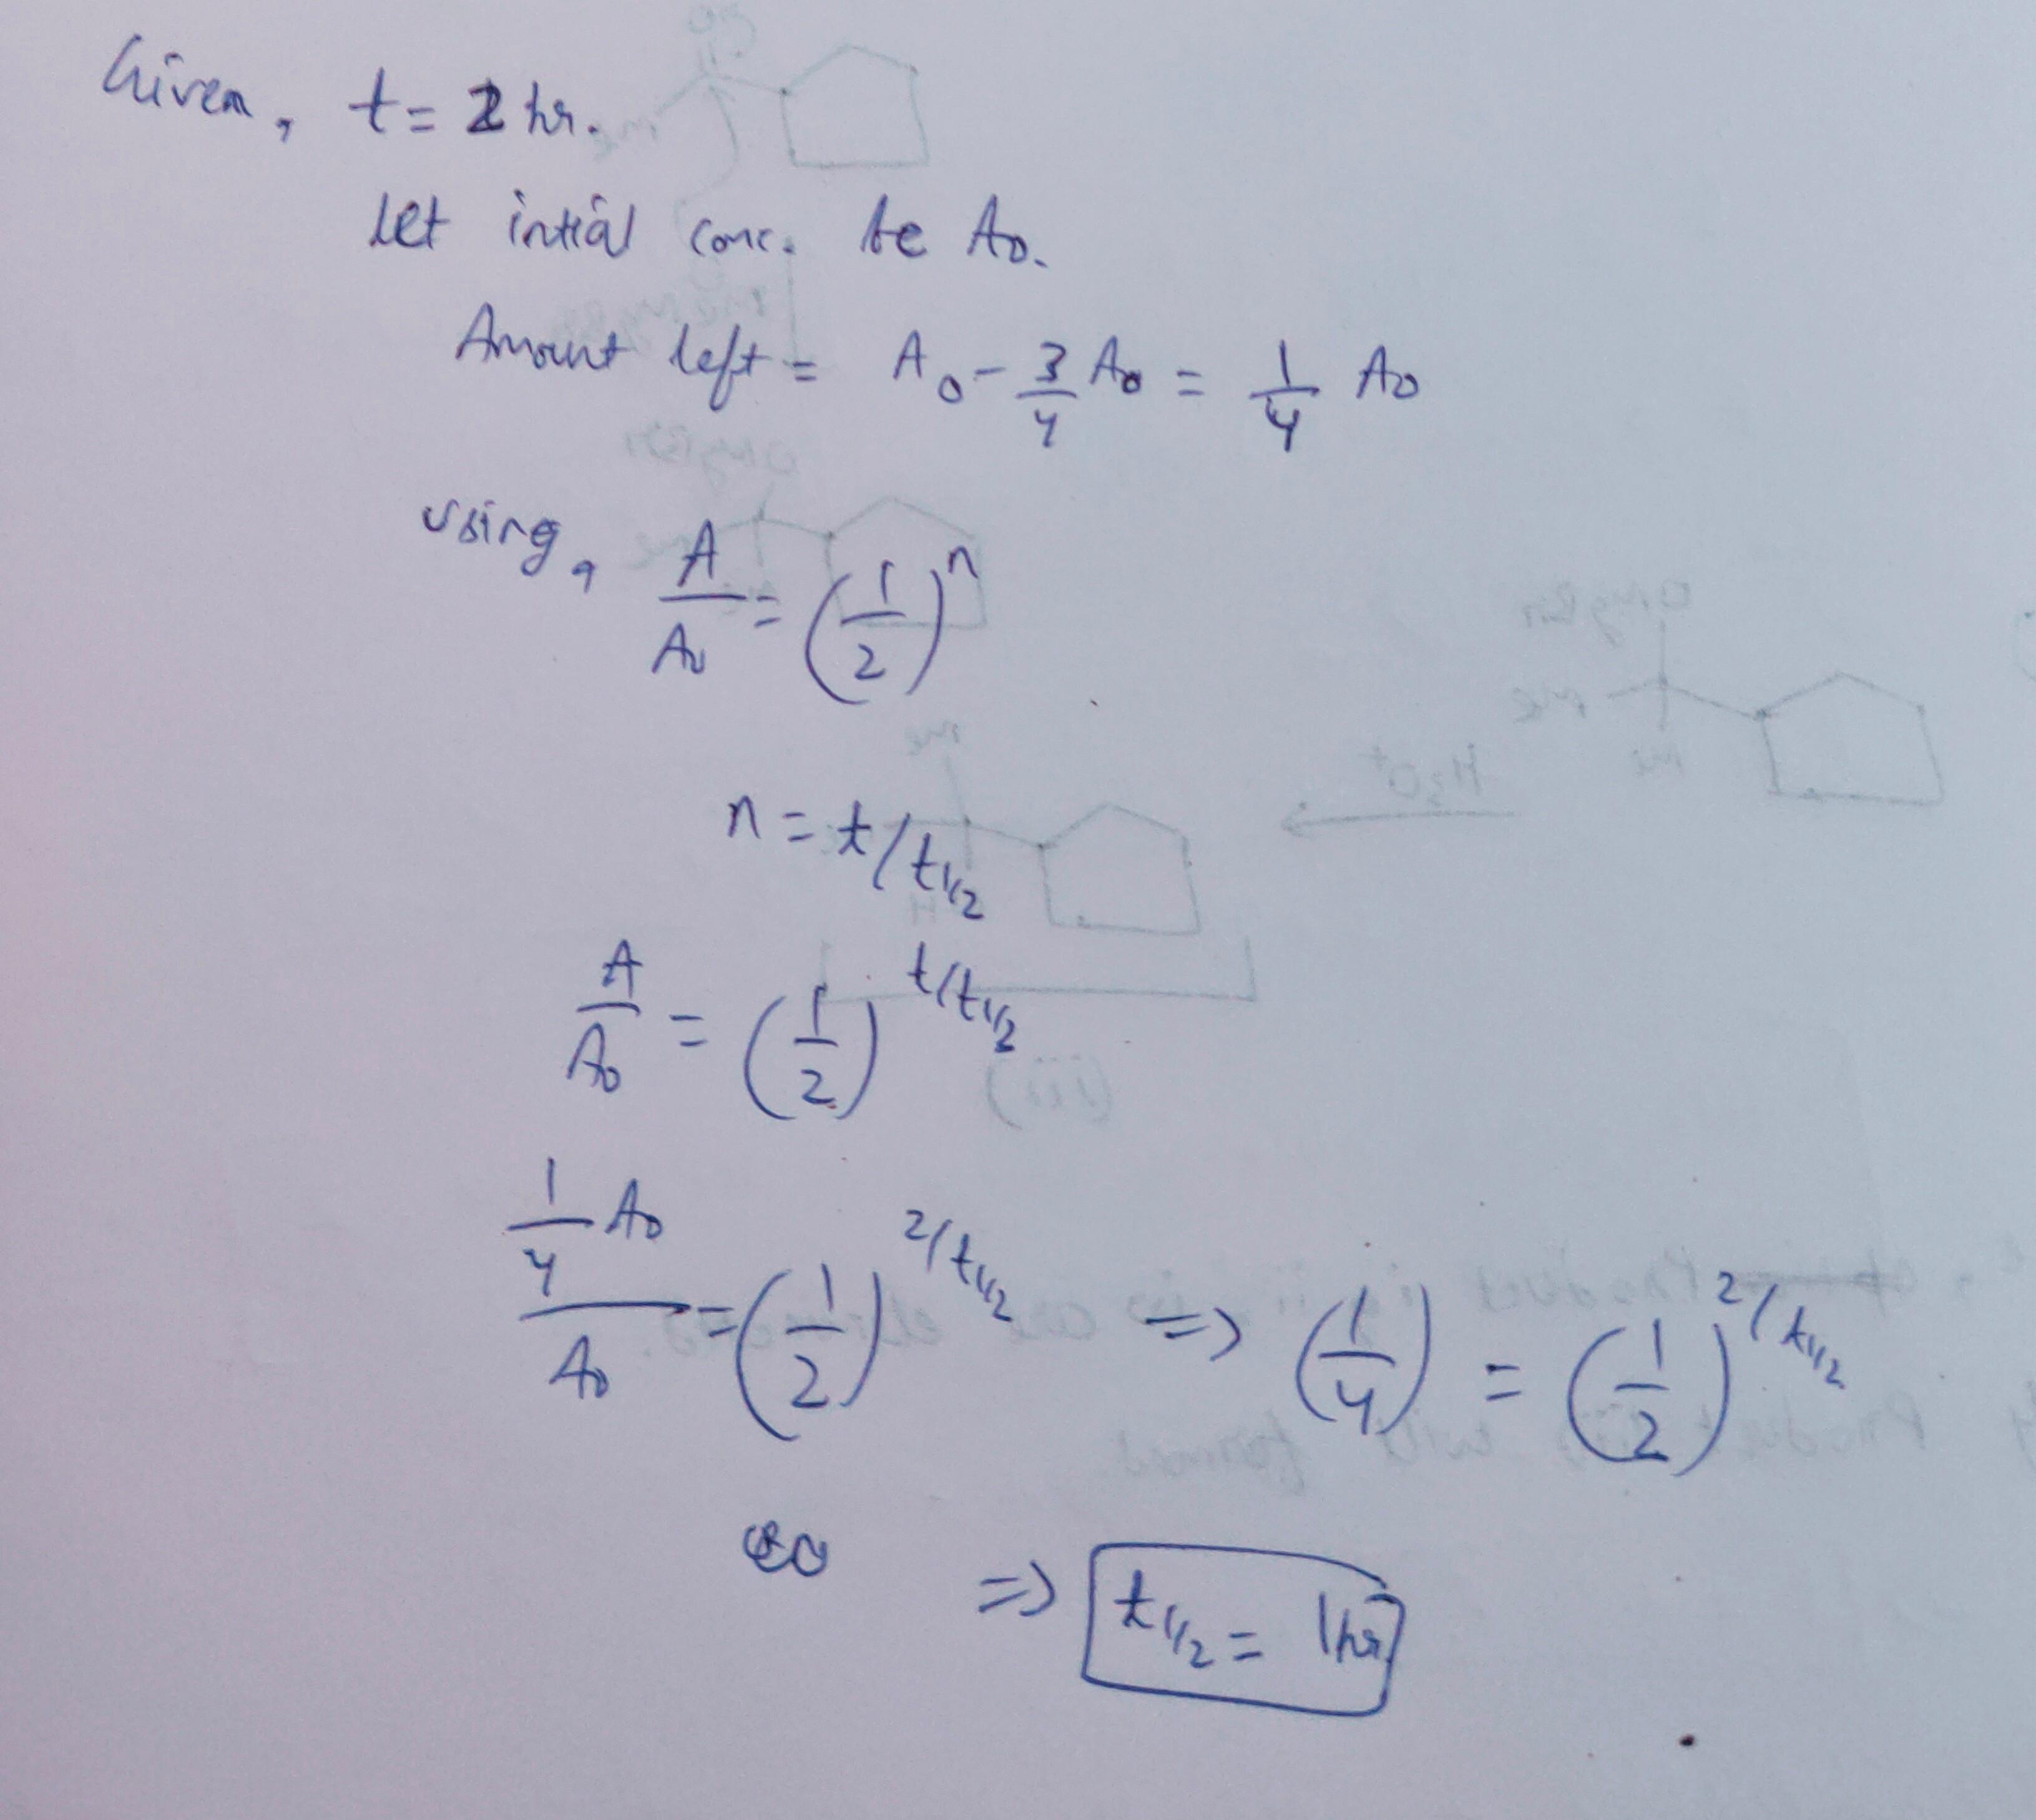 Given, t = 2 hr.
Let intial conc. be A₀.
Amount left = A₀ - 3/4 A₀ = 1/4 A₀
Using, A/A₀ = (1/2)^n
n = t/t1/2
A/A₀ = (1/2)^t/t1/2
1/4 A₀/A₀ = (1/2)^2/t1/2 => (1/4) = (1/2)^2/t1/2
=> t1/2 = 1hr